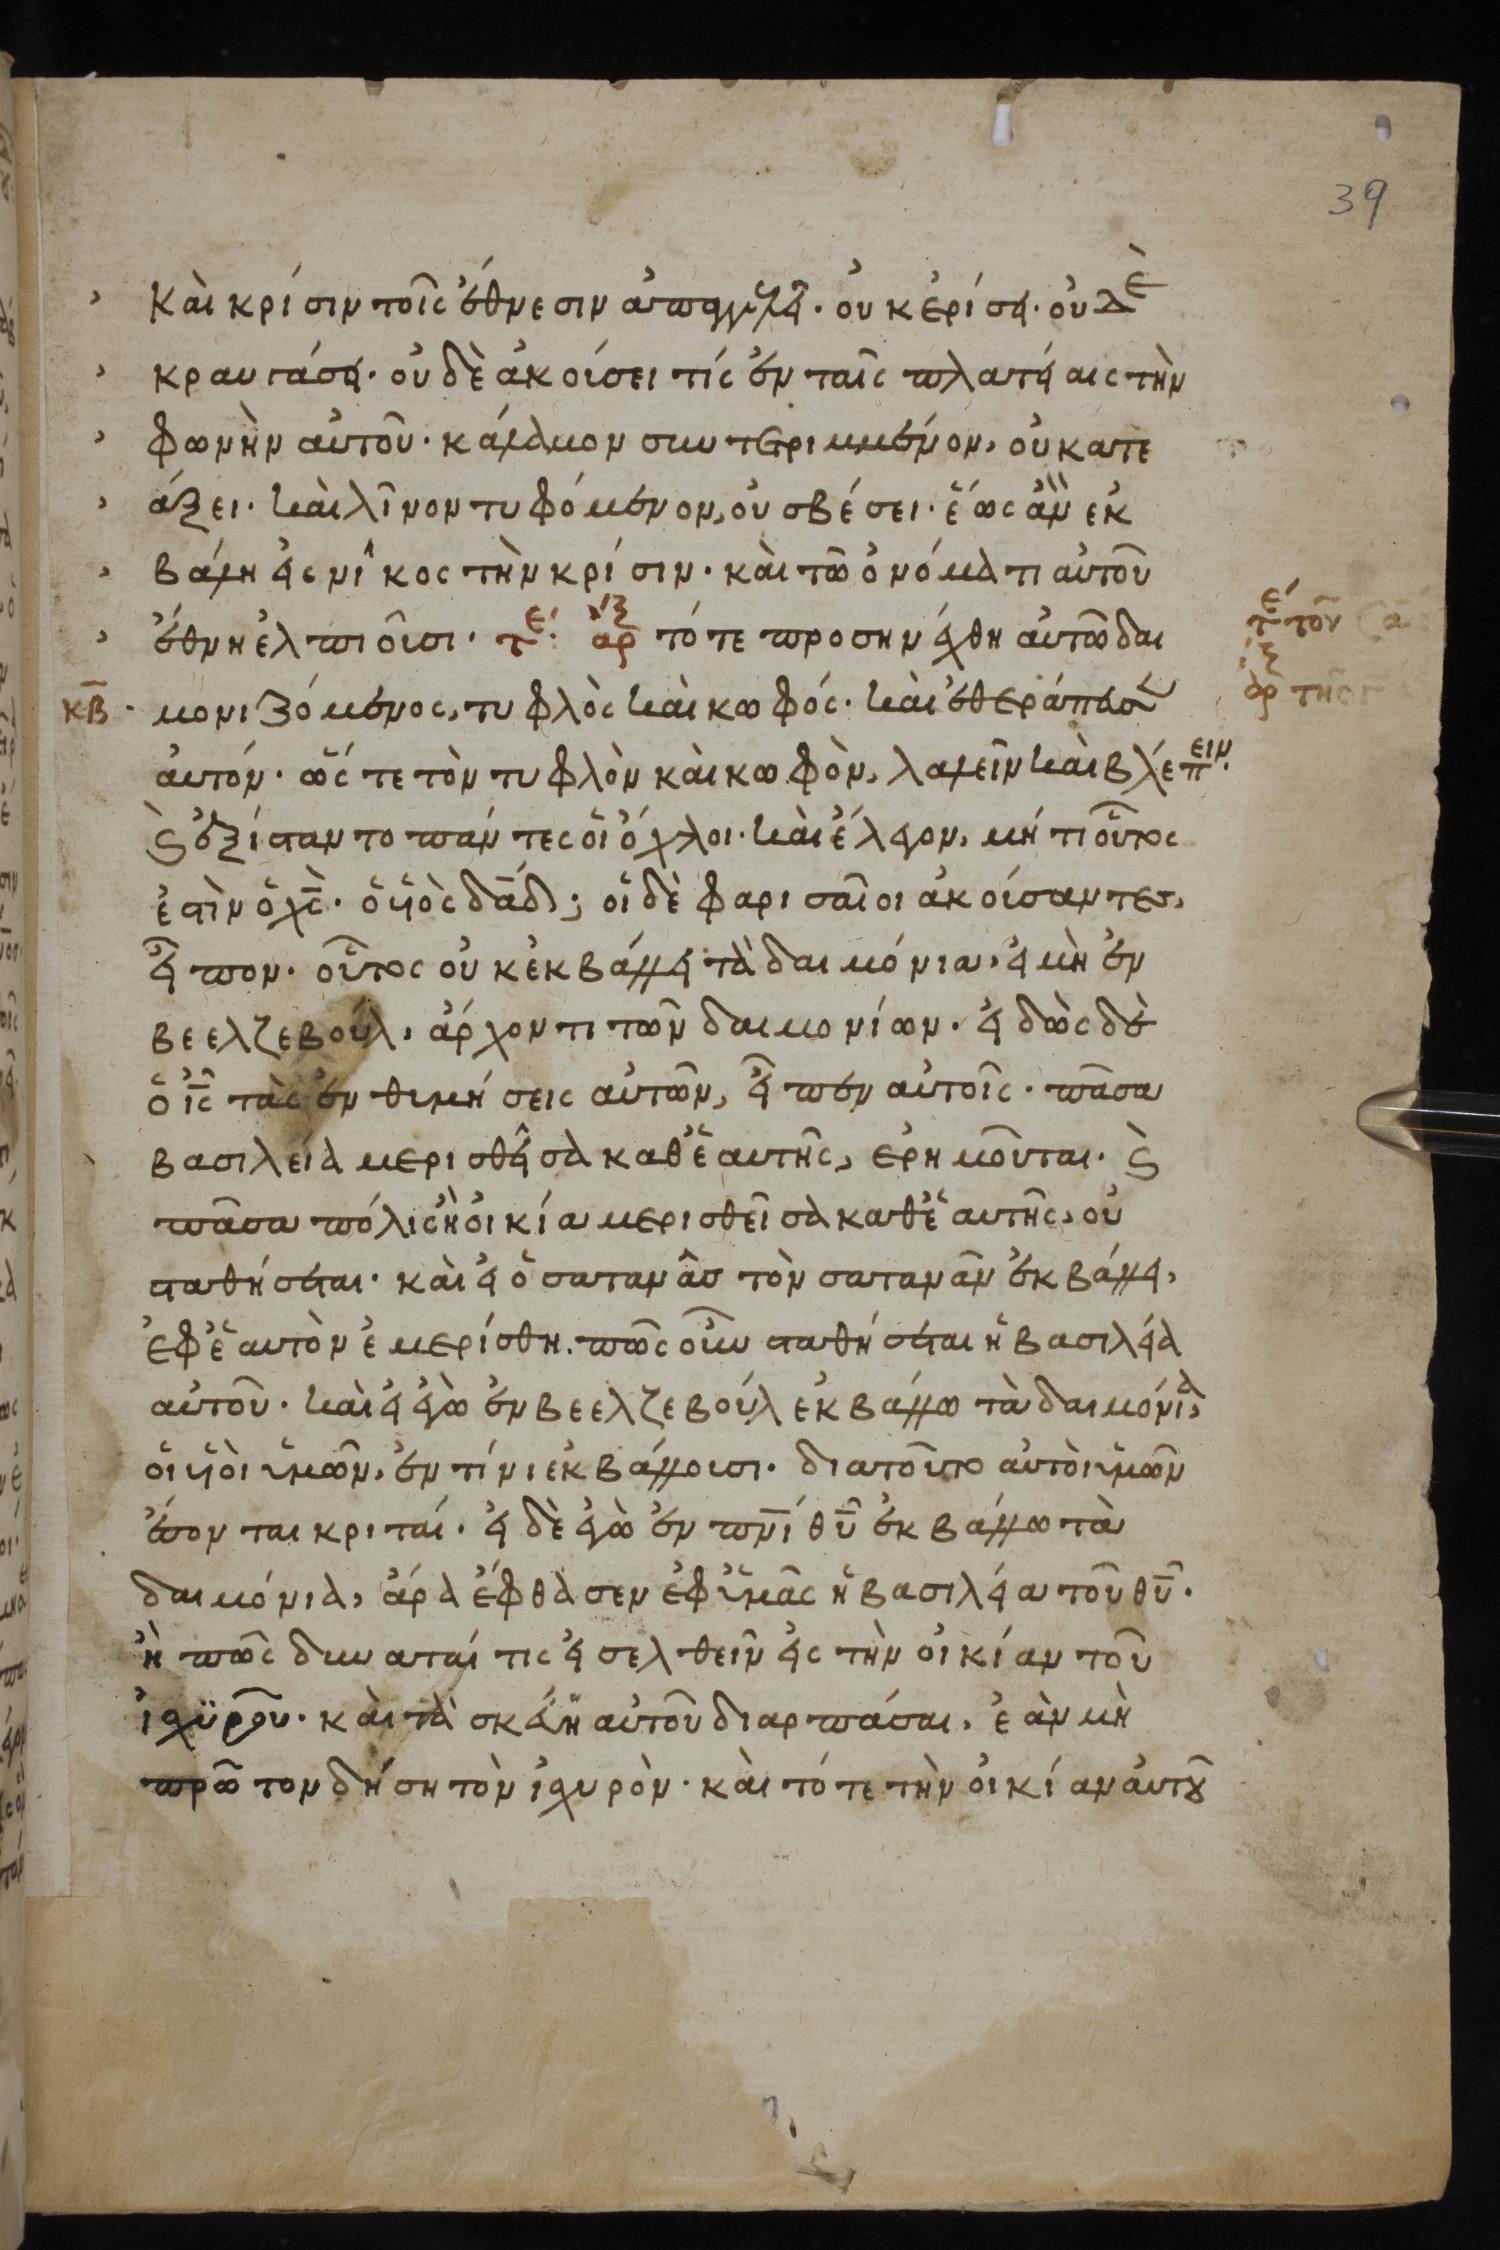 39
καὶ κρίσιν τοῖς ἔθνεσιν ἀπαγγελεῖ· οὐκ ἐρίσει· οὐδὲ
κραυγάσει· οὐδὲ ἀκούσει τίς ἐν ταῖς πλατείαις τὴν
φωνὴν αὐτοῦ· κάλαμον συντετριμμένον, οὐ κατε
άξει· καὶ λῖνον τυφόμενον, οὐ σβέσει· ἕως ἂν ἐκ
βάλη εἰς νῖκος τὴν κρίσιν· καὶ τῶ ὀνόματι αὐτοῦ
ἔθνη ἐλπιοῦσι· τε· αρ τότε προσηνέχθη αὐτῶ δαι
κβ μονιζόμενος, τυφλὸς καὶ κωφός· καὶ ἐθεράπευσεν
αὐτόν· ὥστε τὸν τυφλὸν καὶ κωφὸν, λαλεῖν καὶ βλέπειν·
ϛ ἐξίσταντο πάντες οἱ ὄχλοι· καὶ ἔλεγον, μήτι οὗτος
ἐστὶν ὁ χς· ὁ υἱὸς δαδ; οἱ δὲ φαρισαῖοι ἀκούσαντες,
εἶπον· οὗτος οὐκ ἐκβάλλει τὰ δαιμόνια, εἰ μὴ ἐν
βεελζεβούλ, ἄρχοντι τῶν δαιμονίων· εἰδὼς δὲ
ὁ ις τὰς ἐνθυμήσεις αὐτῶν, εἶπεν αὐτοῖς· πᾶσα
βασιλεία μερισθεῖσα καθ ἑαυτῆς, ἐρημοῦται· ϛ
πᾶσα πόλις ἢ οἰκία μερισθεῖσα καθ ἑαυτῆς, οὐ
σταθήσεται· καὶ εἰ ὁ σατανᾶς τὸν σατανᾶν ἐκβάλλει,
ἐφ ἑαυτὸν ἐμερίσθη. πῶς οὖν σταθήσεται ἡ βασιλεία
αὐτοῦ· καὶ εἰ ἐγὼ ἐν βεελζεβούλ ἐκβάλλω τὰ δαιμόνια,
οἱ υἱοὶ ὑμῶν, ἐν τίνι ἐκβάλλουσι· διατοῦτο αὐτοὶ ὑμῶν
ἔσονται κριταί· εἰ δὲ ἐγὼ ἐν πνι θυ ἐκβάλλω τὰ
δαιμόνια, ἄρα ἔφθασεν ἐφ ὑμᾶς ἡ βασιλεία τοῦ θυ·
ἢ πῶς δύναταί τις εἰσελθεῖν εἰς τὴν οἰκίαν τοῦ
ἰσχϋροῦ· καὶ τὰ σκεύη αὐτοῦ διαρπάσαι, ἐὰν μὴ
πρῶτον δήση τὸν ἰσχυρὸν· καὶ τότε τὴν οἰκίαν αὐτοῦ